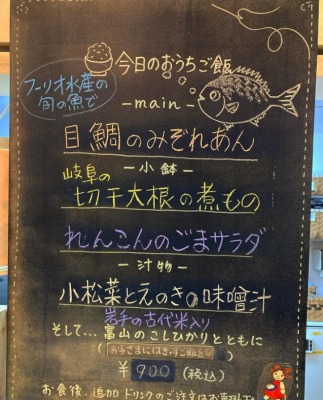 今日のおうちご飯
フーリオ水産の
旬の魚で
-main-
目鯛のみぞれあん
-小鉢-
岐阜の
切干大根の煮もの
れんこんのごまサラダ
-汁物-
小松菜とえのきの味噌汁
岩手の古代米入り
そして...富山のこしひかりとともに
¥900(税込)
お食後、追加ドリンクのご注文は